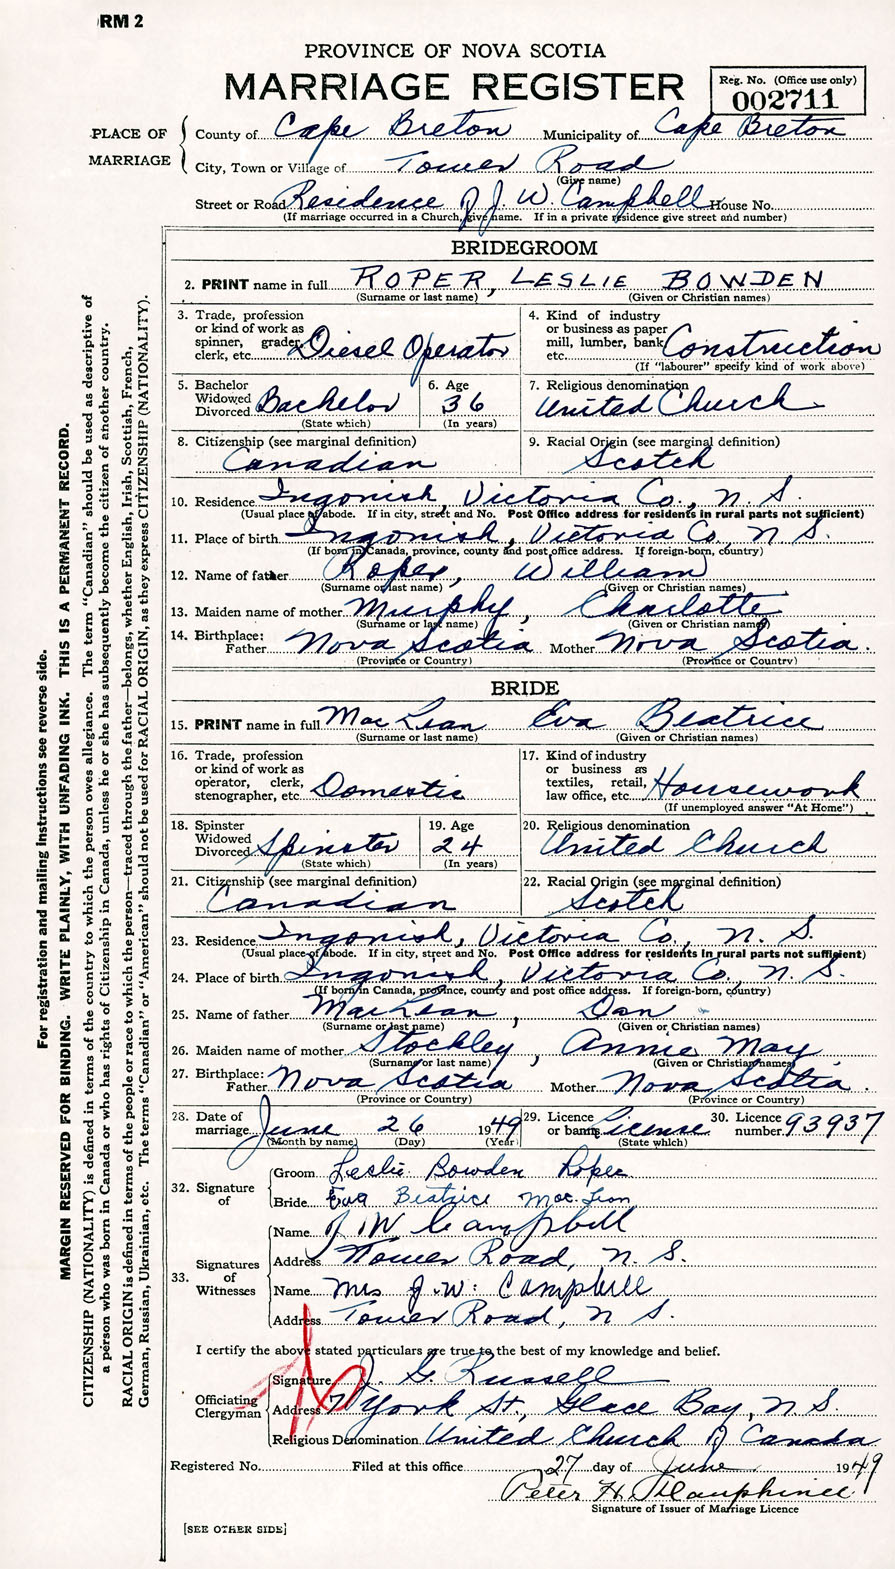 RM 2
PROVINCE OF NOVA SCOTIA
MARRIAGE REGISTER
Reg. No. (Office use only)
002711
PLACE OF MARRIAGE
County of Cape Breton Municipality of Cape Breton
City, Town or Village of Tower Road
(Give name)
Street or Road Residence of J. W. Campbell House No.
(If marriage occurred in a Church, give name. If in a private residence give street and number)
BRIDEGROOM
2. PRINT name in full ROPER, LESLIE BOWDEN
(Surname or last name) (Given or Christian names)
3. Trade, profession or kind of work as spinner, grader, clerk, etc. Diesel Operator
4. Kind of industry or business as paper mill, lumber, bank etc. Construction
(If "labourer" specify kind of work above)
5. Bachelor Widowed Divorced Bachelor
(State which)
6. Age 36
(In years)
7. Religious denomination United Church
8. Citizenship (see marginal definition) Canadian
9. Racial Origin (see marginal definition) Scotch
10. Residence Ingonish, Victoria Co., N. S.
(Usual place of abode. If in city, street and No. Post Office address for residents in rural parts not sufficient)
11. Place of birth Ingonish, Victoria Co., N. S.
(If born in Canada, province, county and post office address. If foreign-born, country)
12. Name of father Roper, William
(Surname or last name) (Given or Christian names)
13. Maiden name of mother Murphy, Charlotte
(Surname or last name) (Given or Christian name)
14. Birthplace:
Father Nova Scotia Mother Nova Scotia.
(Province or Country) (Province or Country)
BRIDE
15. PRINT name in full MacLean Eva Beatrice
(Surname or last name) (Given or Christian names)
16. Trade, profession or kind of work as operator, clerk, stenographer, etc. Domestic
17. Kind of industry or business as textiles, retail, law office, etc. Housework
(If unemployed answer "At Home")
18. Spinster Widowed Divorced Spinster
(State which)
19. Age 24
(In years)
20. Religious denomination United Church
21. Citizenship (see marginal definition) Canadian
22. Racial Origin (see marginal definition) Scotch
23. Residence Ingonish, Victoria Co., N. S.
(Usual place of abode. If in city, street and No. Post Office address for residents in rural parts not sufficient)
24. Place of birth Ingonish, Victoria Co., N. S.
(If born in Canada, province, county and post office address. If foreign-born, country)
25. Name of father MacLean, Dan
(Surname or last name) (Given or Christian names)
26. Maiden name of mother Stockley, Annie May
(Surname or last name) (Given or Christian names)
27. Birthplace:
Father Nova Scotia Mother Nova Scotia.
(Province or Country) (Province or Country)
28. Date of marriage June 26 1949
(Month by name) (Day) (Year)
29. Licence or banns License
(State which)
30. Licence number 93937
32. Signature of
Groom Leslie Bowden Roper
Bride Eva Beatrice Mac Lean
33. Signatures of Witnesses
Name J W Campbell
Address Tower Road, N. S.
Name Mrs J. W. Campbell
Address Tower Road, N S.
I certify the above stated particulars are true to the best of my knowledge and belief.
Officiating Clergyman
Signature J. G. Russell
Address 7 York St., Glace Bay, N S.
Religious Denomination United Church of Canada
Registered No. Filed at this office 27 day of June 1949
Peter H. Dauphinee
Signature of Issuer of Marriage Licence
[SEE OTHER SIDE]
For registration and mailing instructions see reverse side.
MARGIN RESERVED FOR BINDING. WRITE PLAINLY, WITH UNFADING INK. THIS IS A PERMANENT RECORD.
CITIZENSHIP (NATIONALITY) is defined in terms of the country to which the person owes allegiance. The term "Canadian" should be used as descriptive of
a person who was born in Canada or who has rights of Citizenship in Canada, unless he or she has subsequently become the citizen of another country.
RACIAL ORIGIN is defined in terms of the people or race to which the person—traced through the father—belongs, whether English, Irish, Scottish, French,
German, Russian, Ukrainian, etc. The terms "Canadian" or "American" should not be used for RACIAL ORIGIN, as they express CITIZENSHIP (NATIONALITY).